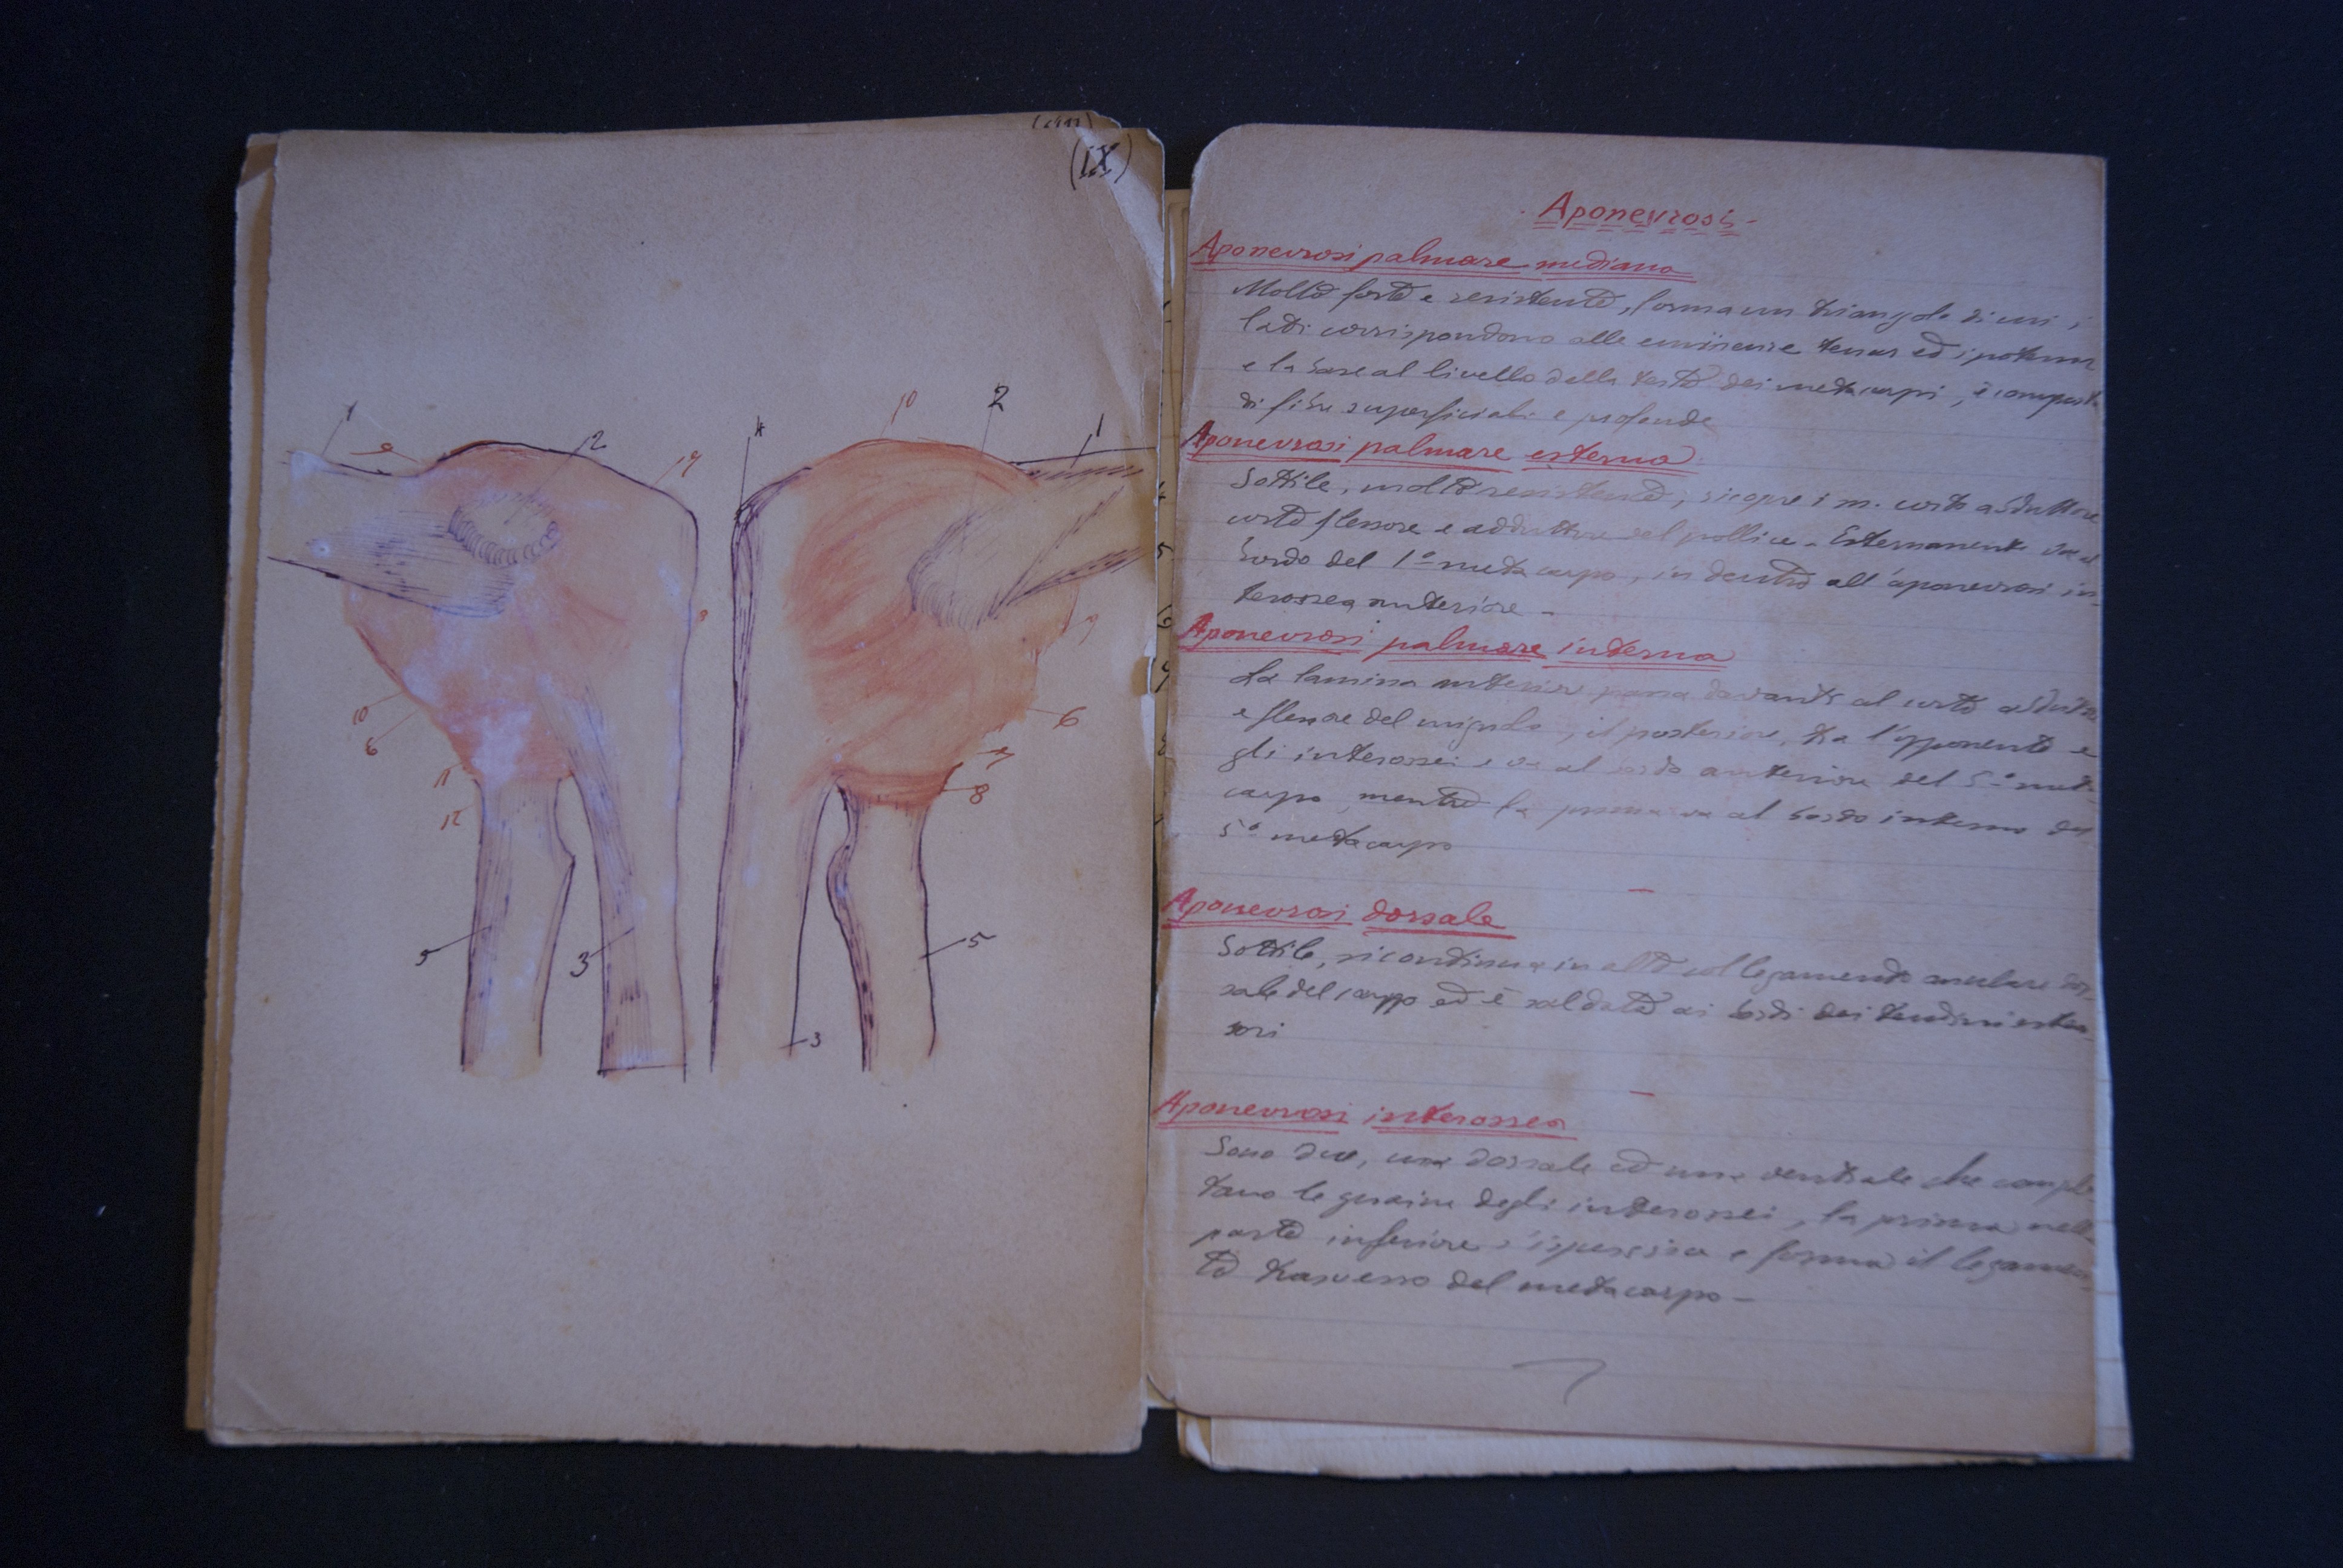 (IX)
1
9
2
10
2
1
4
6
10
6
11
12
7
8
5
3
5
3
Aponevrosi
Aponevrosi palmare mediana
Molto forte e resistente, forma un triangolo di cui i
lati corrispondono alle eminenze tenar ed ipotenar
e la base al livello della testa dei metacarpi, è composta
di fibre superficiali e profonde
Aponevrosi palmare esterna
Sottile, molto resistente, ricopre i m. corto abduttore
corto flessore e adduttore del pollice. Esternamente va al
bordo del 1º metacarpo, in dentro all'aponevrosi in-
terossea anteriore -
Aponevrosi palmare interna
La lamina anteriore passa davanti al corto abduttore
e flessore del mignolo, il posteriore, tra l'opponente e
gli interossei e va al bordo anteriore del 5º meta-
carpo, mentre la prima va al bordo interno del
5º metacarpo
Aponevrosi dorsale
Sottile, si continua in alto col legamento anulare dor-
sale del carpo ed è saldata ai bordi dei tendini esten
sori
Aponevrosi interossea
Sono due, una dorsale ed una ventrale che comple
tano le guaine degli interossei, la prima nella
parte inferiore s'ispessisce e forma il legamen-
to trasverso del metacarpo -